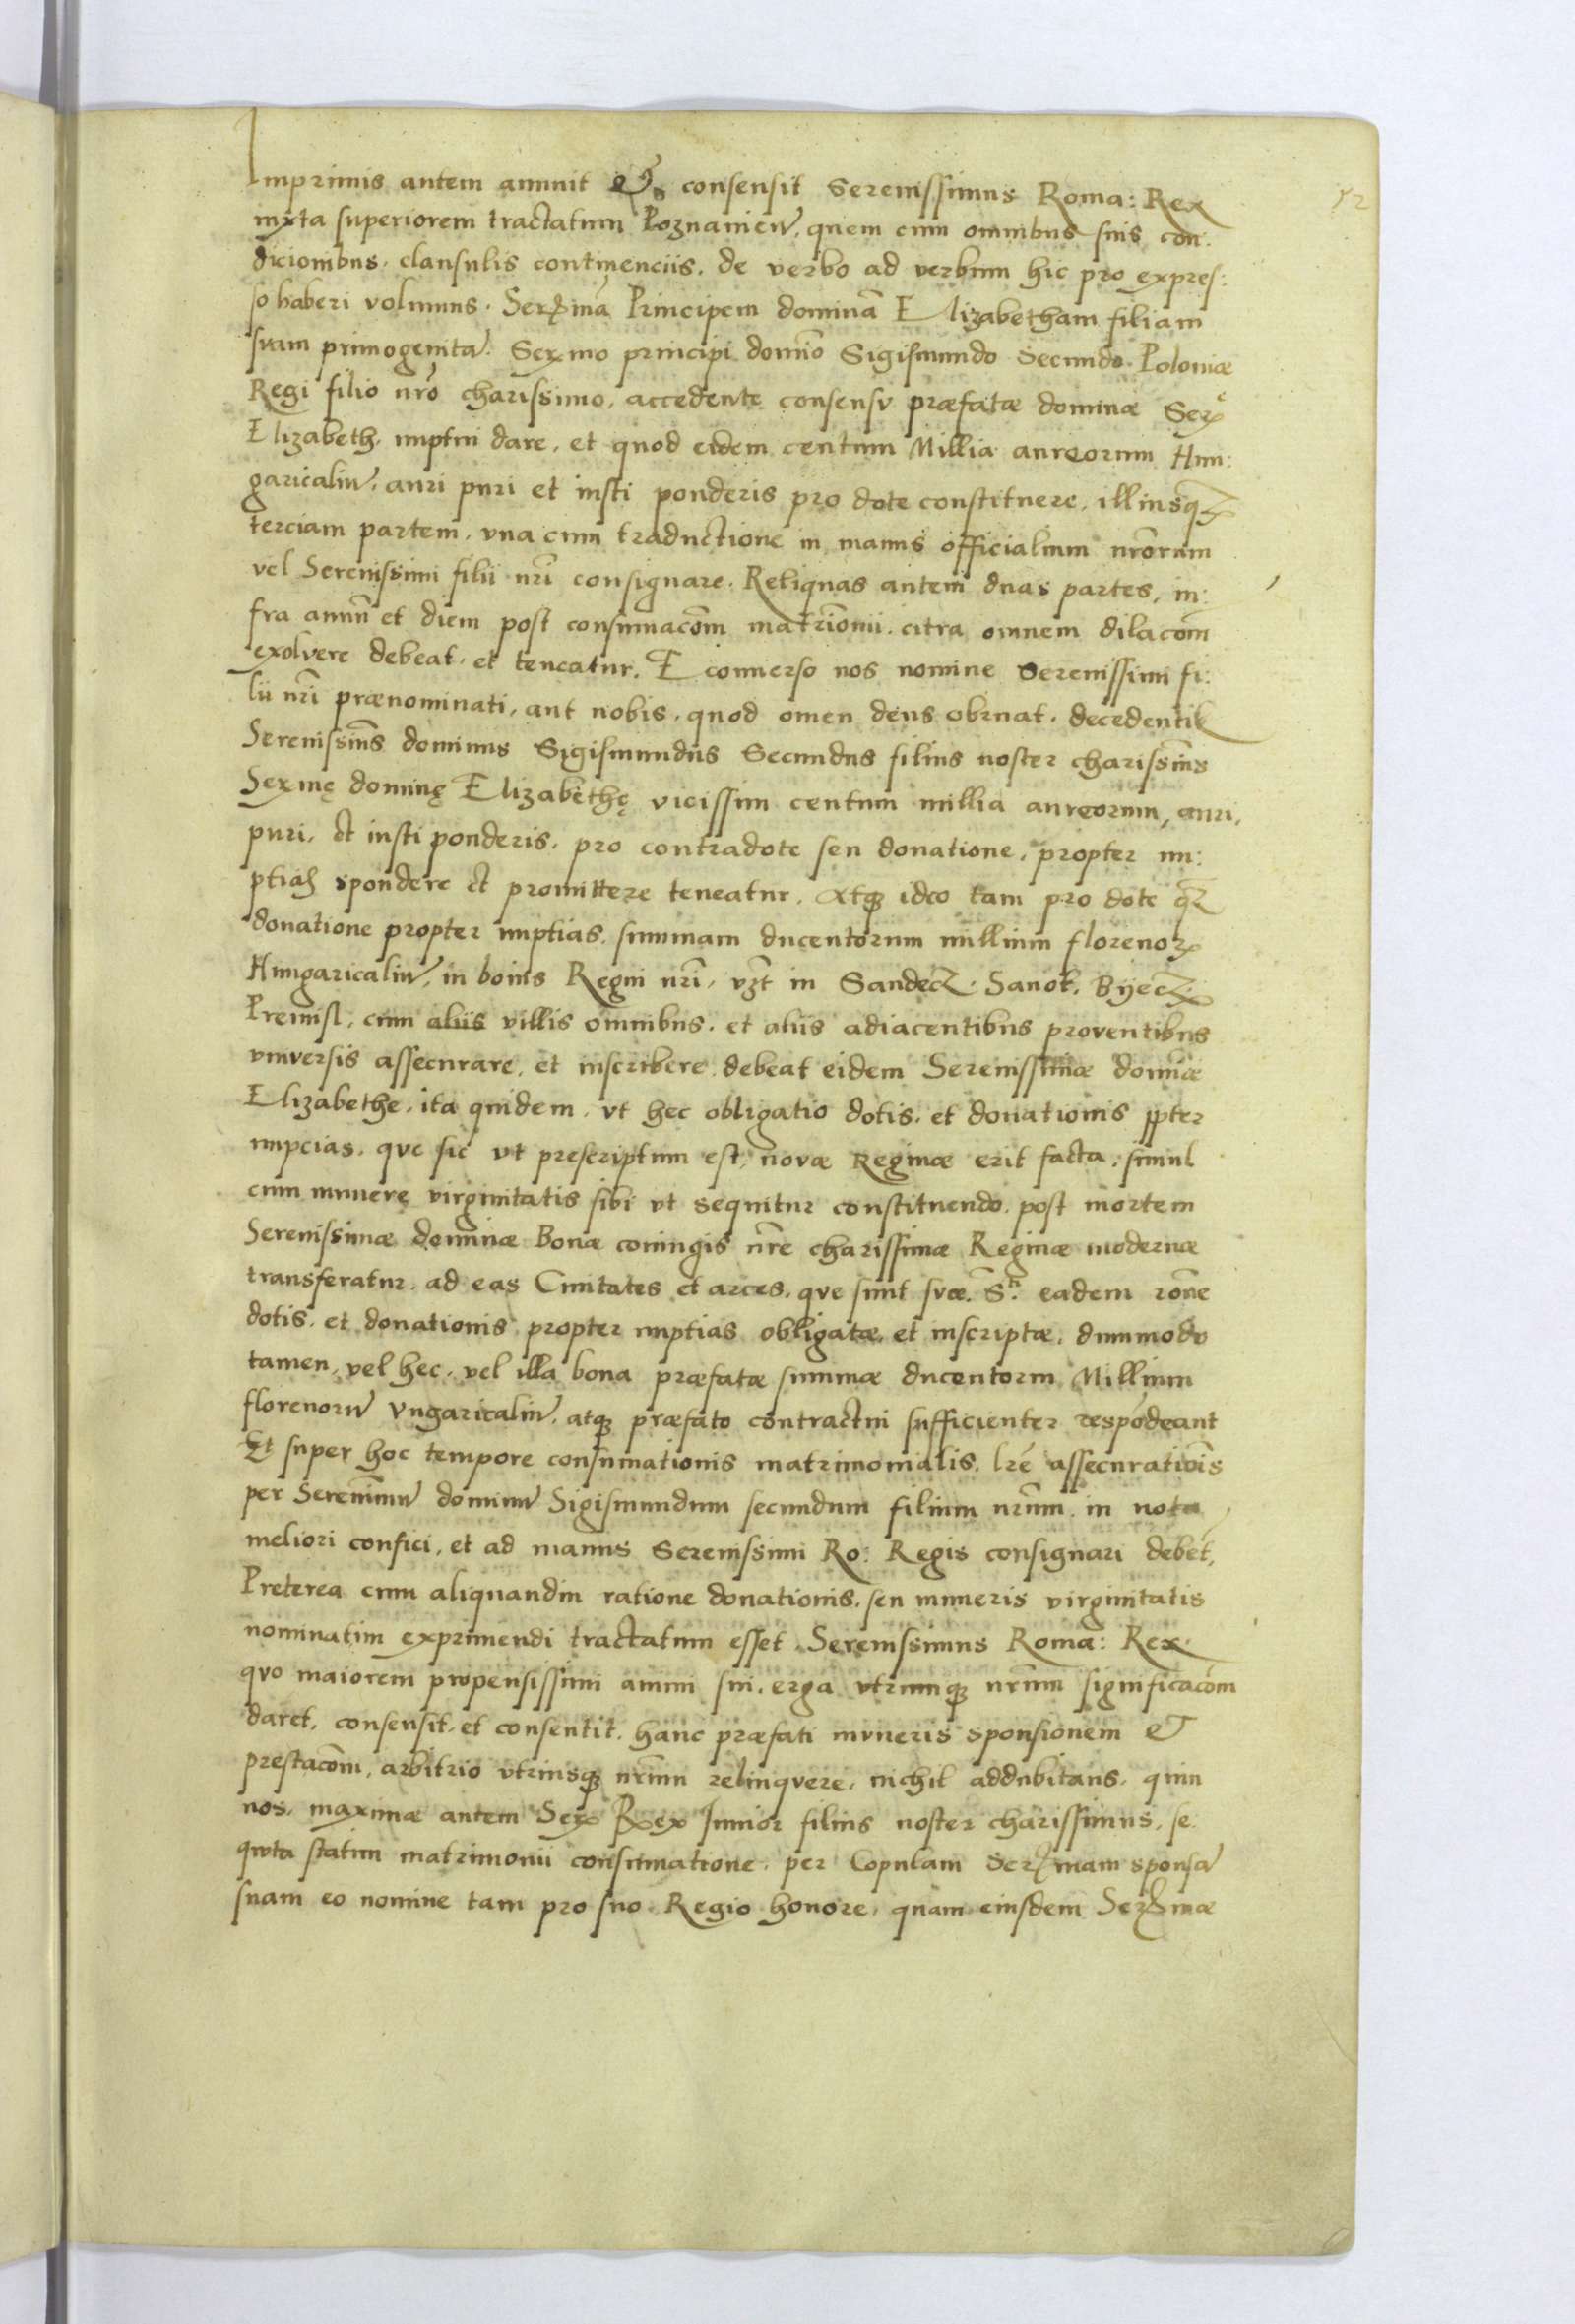 52
Imprimis autem annuit & consensit Serenissimus Roma: Rex
iuxta superiorem tractatum Poznanien̄, quem cum omnibus suis con:
diciombus, clausulis continenciis, de verbo ad verbum hic pro expres:
so haberi volumus. Serēmā Principem dominā Elizabetham filiam
suam primogenitā. Sermo principi domīo Sigismundo Secundo Poloniæ
Regi filio nrō charissimo, accedente consensv præfatæ dominæ Serē
Elizabeth, nuptui dare, et quod eidem centum Millia aureorum Hun:
garicaliū, auri puri et iusti ponderis pro dote constituere, illiusq̄
terciam partem, vna cum traductione in manus officialium nrōrum
vel Serenissimi filii nrī consignare. Reliquas autem duas partes, in:
fra annū et diem post consumacōm matrīonii, citra omnem dilacōm
exolvere debeat, et teneatur. E conuerso nos nomine Serenissimi fi:
lii nrī prænominati, aut nobis, quod omen deus obruat, decedentib
Serenissīms dominus Sigismundus Secundus filius noster charissīms
Sermę dominę Elizabethę vicissim centum millia aureorum, auri,
puri, et iusti ponderis, pro contradote seu donatione, propter nu:
ptias spondere et promittere teneatur. Atq; ideo tam pro dote q̄
donatione propter nuptias, summam ducentorum millium florenor
Hungaricaliū, in bonis Regni nrī, vzt in Sandecz, Sanok, Byecz,
Premisl, cum aliis villis omnibus, et aliis adiacentibus proventibus
vniversis assecurare, et inscribere, debeat eidem Serenissimæ domīæ
Elizabethe, ita quidem, vt hec obligatio dotis, et donationis ppter
nupcias, qve sic vt prescriptum est, novæ Reginæ erit facta, simul
cum munere virginitatis sibi vt sequitur constituendo, post mortem
Serenissimæ dominæ Bonæ coniugis nrē charissimæ Reginæ modernæ
transferatur, ad eas Ciuitates et arces, qve sunt svæ S.tī eadem rōne
dotis, et donationis propter nuptias obligatæ, et inscriptæ, dummodo
tamen, vel hec, vel illa bona præfatæ summæ ducentorm Millium
florenorū Vngaricaliū, atq; præfato contractui sufficienter respōdeant
Et super hoc tempore consumationis matrimonialis, lrē assecurationīs
per Serenīmū dominū Sigismundum secundum filium nrūm, in nota
meliori confici, et ad manus Serenissimi Ro: Regis consignari debēt,
Preterea cum aliquandiu ratione donationis, seu muneris virginitatis
nominatim exprimendi tractatum esset, Serenissimus Roma: Rex,
qvo maiorem propensissimi animi sui, erga vtrumq; nrūm significacōm
daret, consensit, et consentit, hanc præfati mvneris sponsionem &
prestacōm, arbitrio vtriusq; nrūm relinqvere, nichil addubitans, quin
nos, maximæ autem Ser Rex Iunior filius noster charissimus, se:
qvta statim matrimonii consumatione, per Copulam Serēmam sponsā
suam eo nomine tam pro suo Regio honore, quam eiusdem Serēmæ